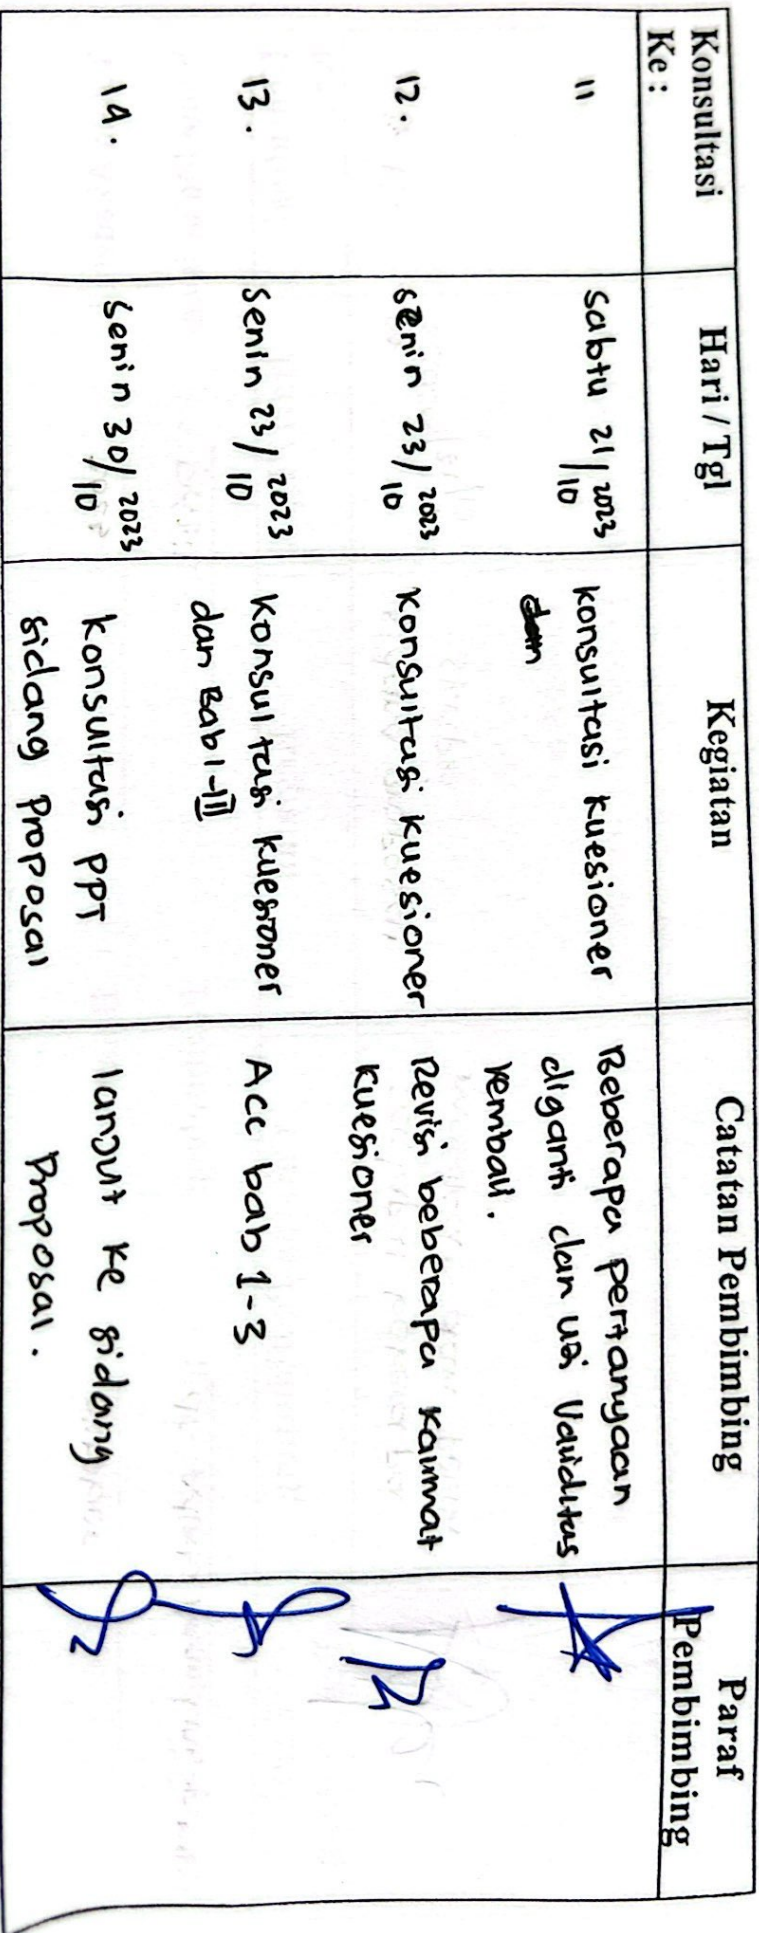 Konsultasi Ke :
Hari / Tgl
Kegiatan
Catatan Pembimbing
Paraf Pembimbing
11
Sabtu 21/10 2023
konsultasi kuesioner
Beberapa pertanyaan
diganti dan uji Validitas
kembali.
12.
senin 23/10 2023
Konsultasi kuesioner
Revisi beberapa kalimat
kuesioner
13.
Senin 23/10 2023
Konsultasi kuesioner
dan Bab I-III
Acc bab 1-3
14.
Senin 30/10 2023
konsultasi PPT
sidang Proposal
lanjut ke sidang
Proposal.